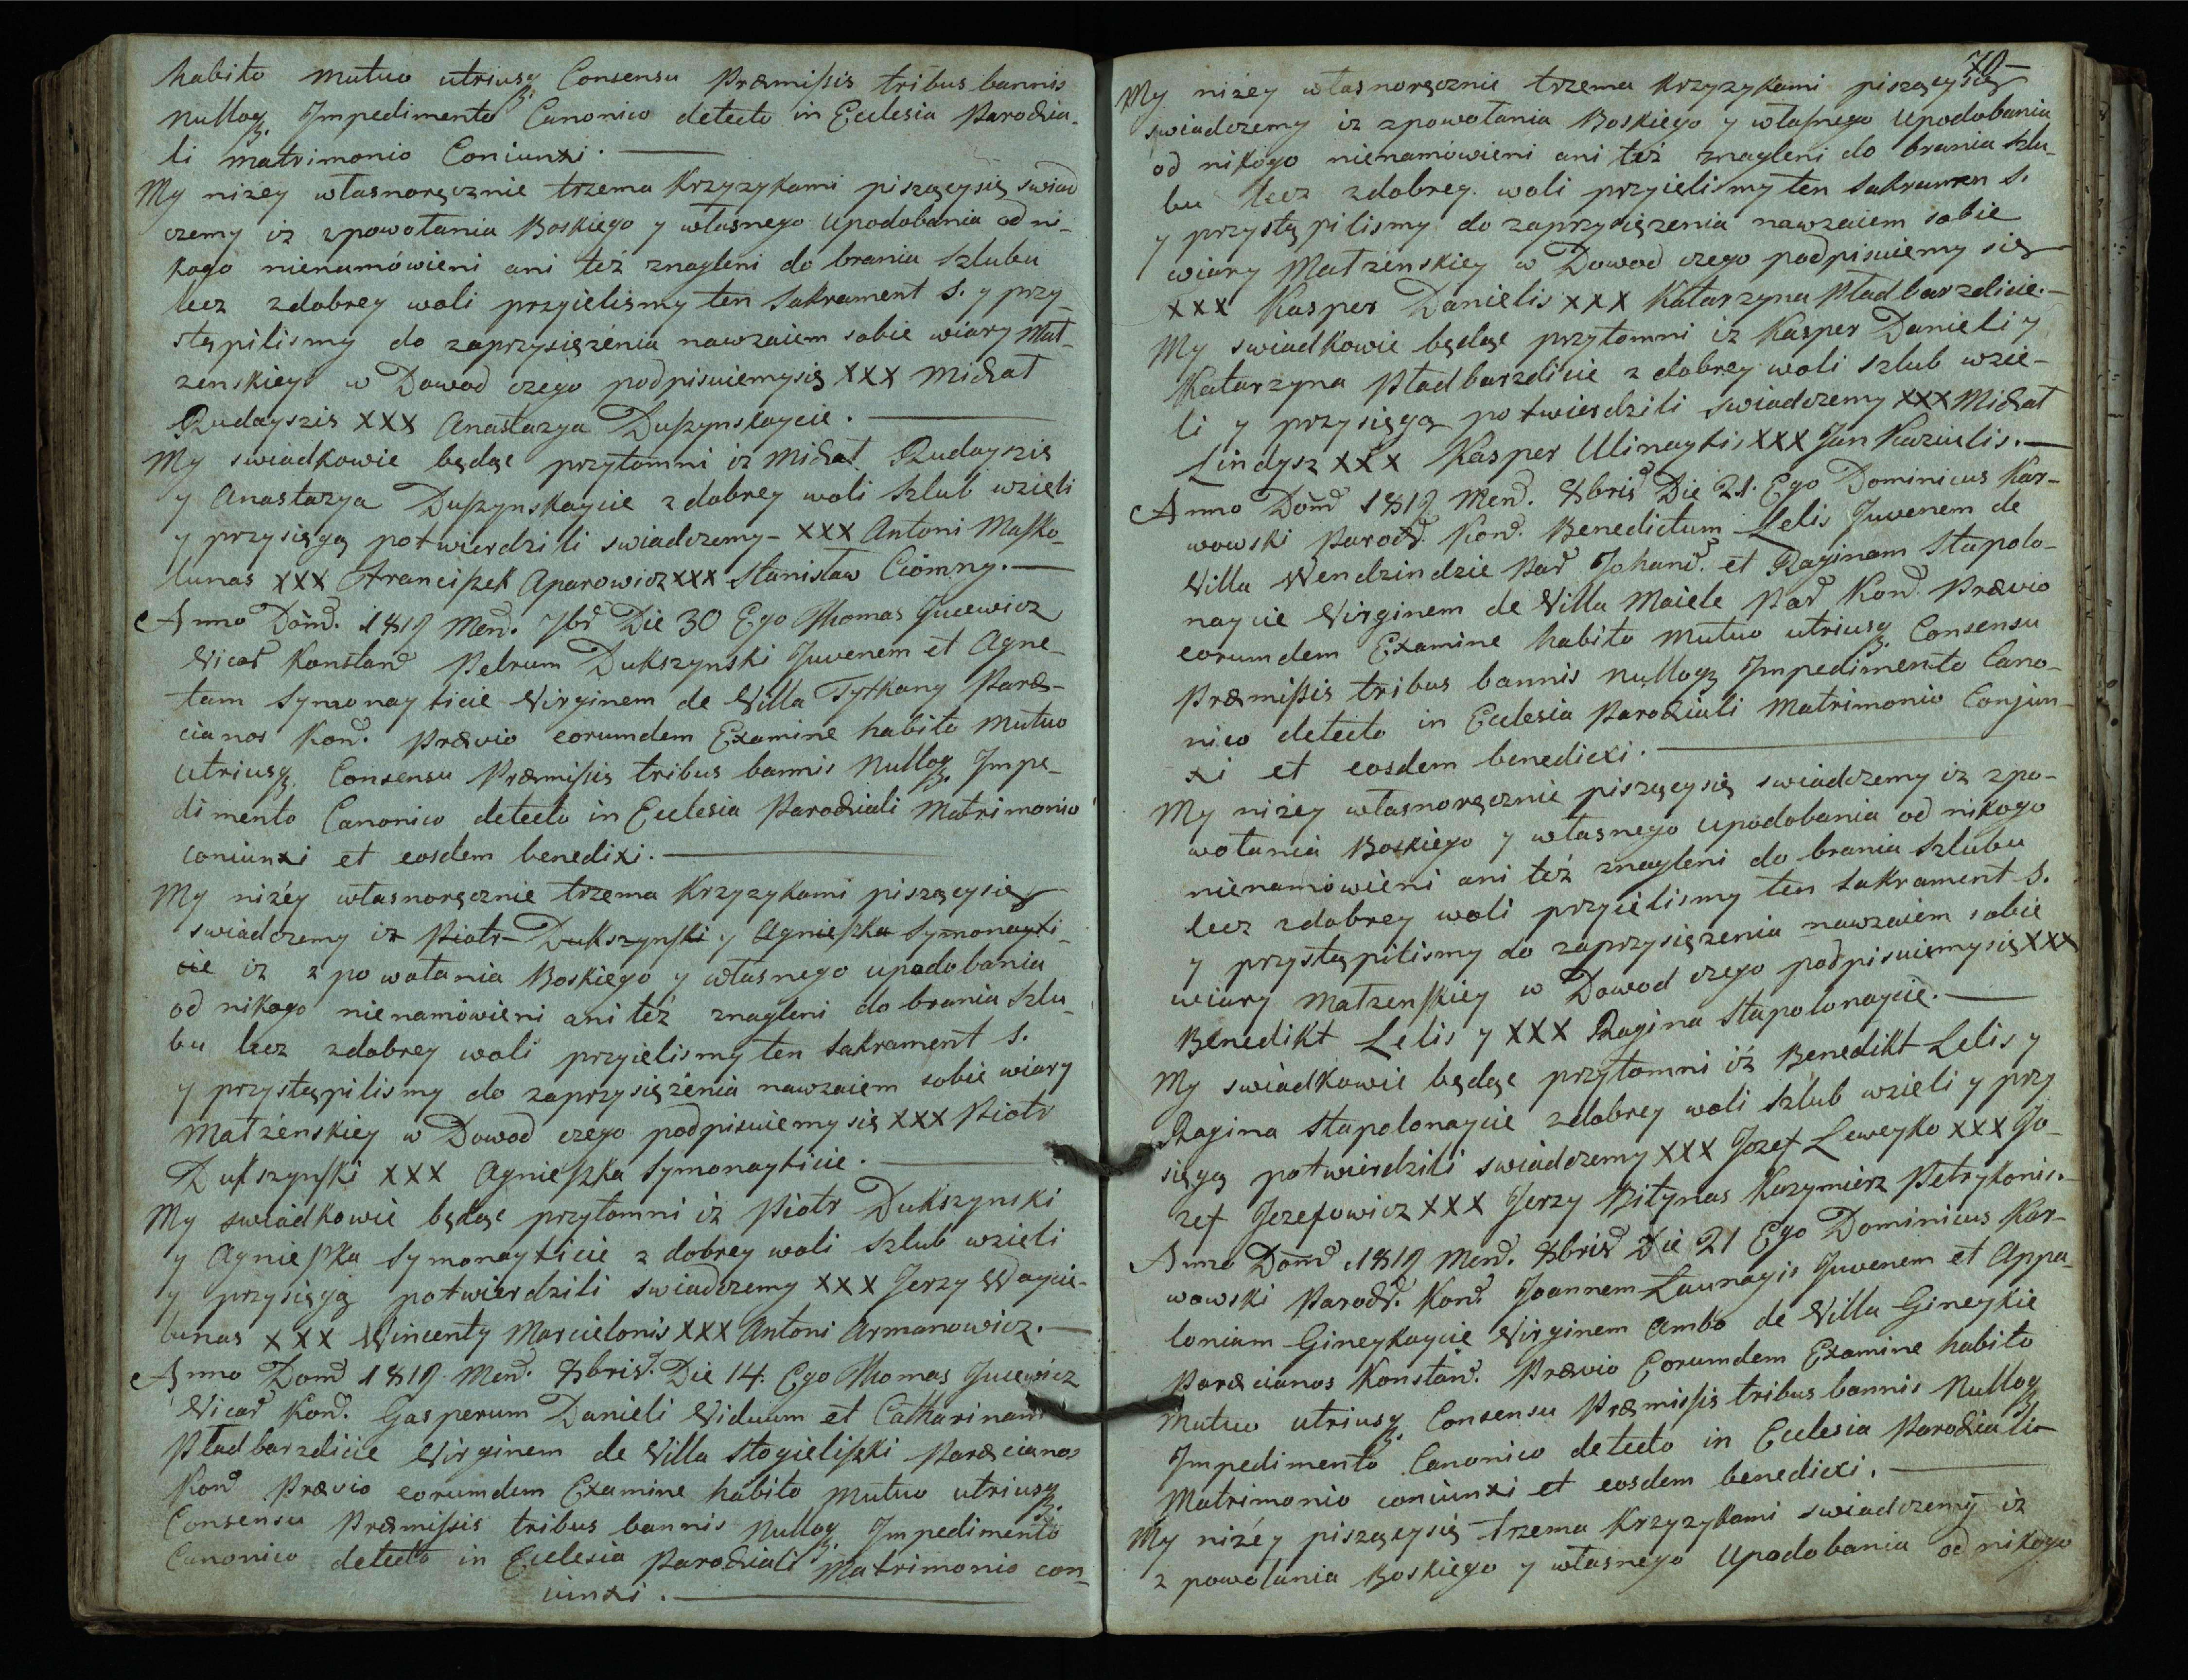 habito mutuo utriusq. Consensu Præmissis tribus bannis
nulloq. Impedimento Canonico detecto in Ecclesia Parochia-
li matrimonio Coniunxi.
My nizey własnoręcznie trzema Krzyzykami piszącysię swiad
czemy iz zpowołania Boskiego y własnego Upodobania od ni-
kogo nienamówieni ani też znagleni do brania Szlubu
lecz zdobrey woli przyielismy ten Sakrament S. y przy-
stąpilismy do zaprzysiężenia nawzaiem sobie wiary Mał-
zenskiey w Dowod czego podpisuiemysię XXX Michał
Rudayszis XXX Anastazya Duszynskaycie.
My swiadkowie będąc przytomni iz Michał Rudayszis
y Anastazya Duszynskaycie zdobrey woli Szlub wzieli
y przysięgą potwierdzili swiadczemy - XXX Antoni Masko-
lunas XXX Franciszek Aparowicz XXX Stanisław Ciomny.
Anno Dom̄. 1819 Men. 7br Die 30 Ego Thomas Jucewicz
Vicar Konstan Petrum Dukszynski Juvenem et Agne-
tam Symonayticie Virginem de Villa Tyszkany Paræ-
cianos Kon. Prævio eorumdem Examine habito mutuo
utriusq. Consensu Præmissis tribus bannis nulloq. Impe-
dimento Canonico detecto in Ecclesia Parochiali Matrimonio
coniunxi et eosdem benedixi.
My niżey własnoręcznie trzema Krzyzykami piszącysię
swiadczemy iz Piotr Dukszynski y Agnieszka Symonayti-
cie iz z powołania Boskiego y własnego upodobania
od nikogo nienamówieni ani też znagleni do brania Szlu-
bu lecz zdobrey woli przyielismy ten Sakrament S.
y przystąpilismy do zaprzysiężenia nawzaiem sobie wiary
Małżenskiey w Dowod czego podpisuiemysię XXX Piotr
Dukszynski XXX Agnieszka Symonayticie.
My swiadkowie będąc przytomni iz Piotr Dukszynski
y Agnieszka Symonayticie z dobrey woli Szlub wzieli
y przysięgą potwierdzili swiadczemy XXX Jerzy Waycie-
lunas XXX Wincenty Marcielonis XXX Antoni Armanowicz.
Anno Dom 1819 Men. 8bris. Die 14. Ego Thomas Jucewicz
Vicar Kon. Gasperum Danieli Viduum et Catharinam
Pładbarzdicie Virginem de Villa Stogieliszki Paræcianos
Kon Prævio eorumdem Examine habito mutuo utriusq.
Consensu Præmissis tribus bannis nulloq. Impedimento
Canonico detecto in Ecclesia Parochiali Matrimonio con-
iunxi.
70
My niżey własnoręcznie trzema Krzyzykami piszącysię
swiadczemy iz zpowołania Boskiego y własnego Upodobania
od nikogo nienamówieni ani też znagleni do brania Szlu-
bu lecz zdobrey woli przyielismy ten Sakramen S.
y przystąpilismy do zaprzysięzenia nawzaiem sobie
wiary Małzenskiey w Dowod czego podpisuiemy się
XXX Kasper Danielis XXX Katarzyna Pładbarzdicie.
My swiadkowie będąc przytomni iz Kasper Danieli y
Katarzyna Pładbarzdicie z dobrey woli szlub wzie-
li y przysięgą potwierdzili swiadczemy XXX Michał
Lindysz XXX Kasper Ulinaytis XXX Jan Kuzielis.
Anno Dom̄ 1819 Men. 8bris Die 21. Ego Dominicus Kar-
wowski Paroch. Kon. Benedictum Lelis Juvenem de
Villa Wendzindzie Par Johan. et Raginam Stapolo-
naycie Virginem de Villa Maiele Par Kon. Prævio
eorumdem Examine habito mutuo utriusq. Consensu
Præmissis tribus bannis nulloq Impedimento Cano-
nico detecto in Ecclesia Parochiali Matrimonio Conjun-
xi et eosdem benedicxi.
My niżey własnoręcznie piszącysię swiadczemy iz zpo-
wołania Boskiego y własnego upodobania od nikogo
nienamówieni ani też znagleni do brania Szlubu
lecz zdobrey woli przyielismy ten Sakrament S.
y przystąpilismy do zaprzysięzenia nawzaiem sobie
wiary Małzenskiey w Dowod czego podpisuiemysię XXX
Benedikt Lelis y XXX Ragina Stapolonaycie.
My swiadkowie będąc przytomni iż Benedikt Lelis y
Ragina Stapolonaycie zdobrey woli Szlub wzieli y przy
sięgą potwierdzili swiadczemy XXX Jozef Leweyko XXX Jo-
zef Jozefowicz XXX Jerzy Bitynas Kazymierz Petrykonis.
Anno Dom̄ 1819 Men. 8bris Die 21 Ego Dominicus Kar-
wowski Paroch. Kon. Joannem Launagis Juvenem et Appa-
loniam Gineykaycie Virginem Ambo de Villa Gineykie
Paræcianos Konstan. Prævio Eorumdem Examine habito
mutuo utriusq. Consensu Præmissis tribus bannis nulloq
Impedimento Canonico detecto in Ecclesia Parochiali
Matrimonio coniunxi et eosdem benedicxi.
My niżey piszącysię trzema Krzyzykami swiadczemy iż
z powołania Boskiego y własnego Upodobania od nikogo